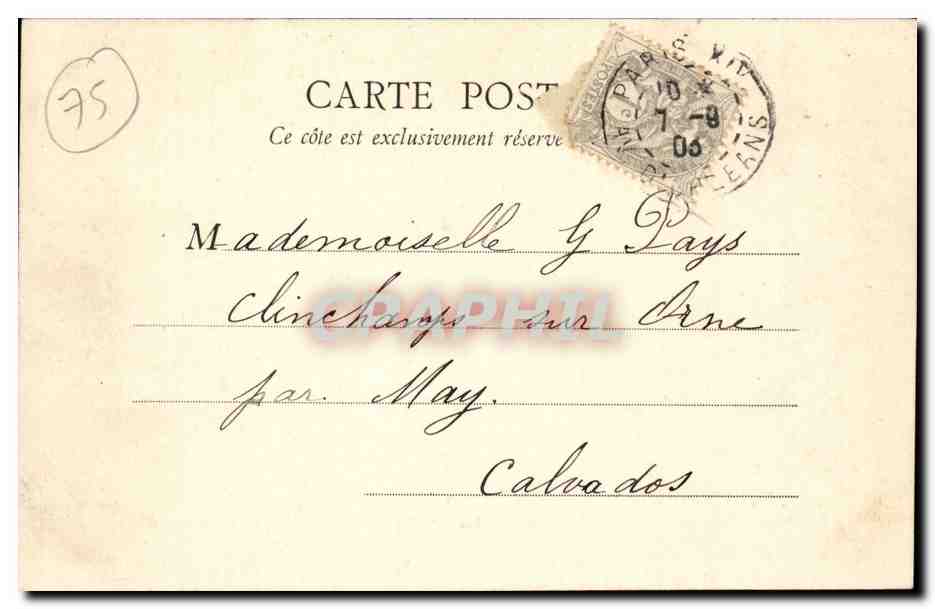 75
CARTE POST
Ce côte est exclusivement réservé
PARIS XIV
10
7 -8
03
Av. D'ORLEANS
POSTES
Mademoiselle G Pays
Clinchamps sur Orne
par May.
Calvados
CPAPHIL